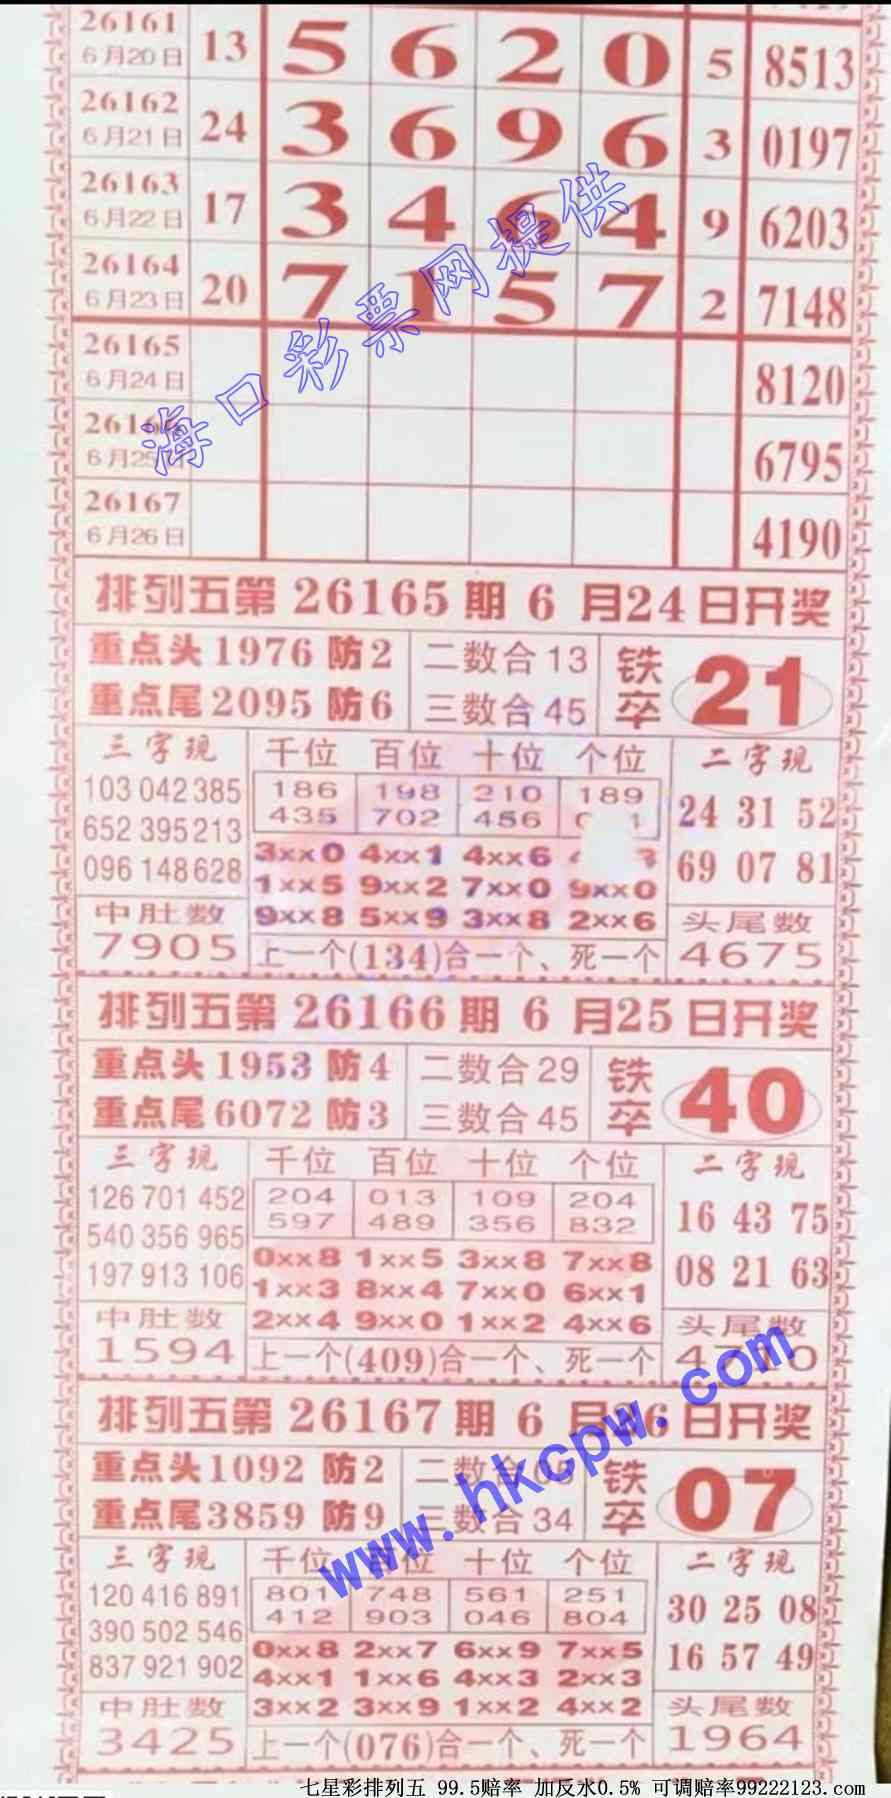 26161
6月20日 13 5 6 2 0 5 8513
26162
6月21日 24 3 6 9 6 3 0197
26163
6月22日 17 3 4 6 4 9 6203
26164
6月23日 20 7 1 5 7 2 7148
26165
6月24日 8120
26166
6月25日 6795
26167
6月26日 4190
海口彩票网提供
排列五第26165期6月24日开奖
重点头1976防2 二数合13 铁卒 21
重点尾2095防6 三数合45
三字现 千位 百位 十位 个位 二字现
103 042 385 186 198 210 189 24 31 52
652 395 213 435 702 456
096 148 628 3xx0 4xx1 4xx6 69 07 81
1xx5 9xx2 7xx0 9xx0
中肚数 9xx8 5xx9 3xx8 2xx6 头尾数
7905 上一个(134)合一个、死一个 4675
排列五第26166期6月25日开奖
重点头1953防4 二数合29 铁卒 40
重点尾6072防3 三数合45
三字现 千位 百位 十位 个位 二字现
126 701 452 204 013 109 204 16 43 75
540 356 965 597 489 356 832
197 913 106 0xx8 1xx5 3xx8 7xx8 08 21 63
1xx3 8xx4 7xx0 6xx1
中肚数 2xx4 9xx0 1xx2 4xx6 头尾数
1594 上一个(409)合一个、死一个 4710
www.hkcpw.com
排列五第26167期6月26日开奖
重点头1092防2 二数合05 铁卒 07
重点尾3859防9 三数合34
三字现 千位 百位 十位 个位 二字现
120 416 891 801 748 561 251 30 25 08
390 502 546 412 903 046 804
837 921 902 0xx8 2xx7 6xx9 7xx5 16 57 49
4xx1 1xx6 4xx3 2xx3
中肚数 3xx2 3xx9 1xx2 4xx2 头尾数
3425 上一个(076)合一个、死一个 1964
七星彩排列五 99.5赔率 加反水0.5% 可调赔率99222123.com